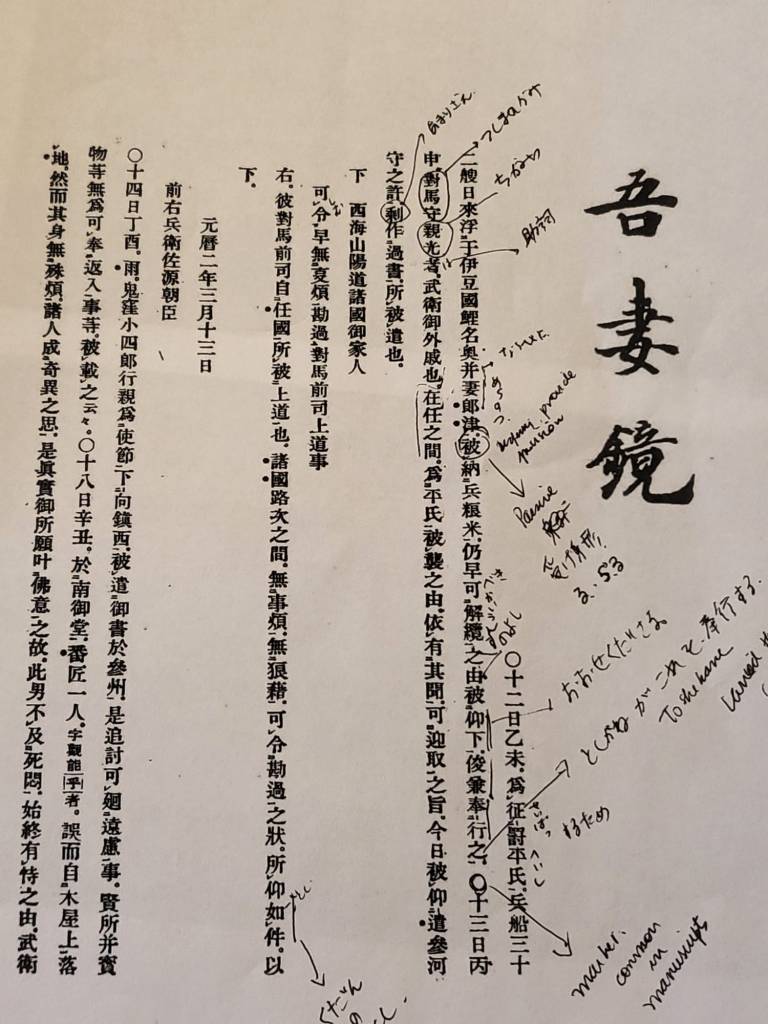 吾妻鏡
〇十二日乙未。爲征罸平氏。兵船三十
二艘日來浮于伊豆國鯉名奧并妻郎津。被納兵粮米。仍早可解纜之由被仰下。俊兼奉行之。〇十三日丙
申。對馬守親光者。武衛御外戚也。在任之間。爲平氏被襲之由。依有其聞。可迎取之旨。今日被仰遣參河
守之許。剩作過書。所被遣也。
下 西海山陽道諸國御家人
可令早無煩勘過對馬前司上道事
右。彼對馬前司自任國所被上道也。諸國路次之間。無事煩。無狼藉。可令勘過之狀。所仰如件。以
下。
元曆二年三月十三日
前右兵衛佐源朝臣
〇十四日丁酉。雨。鬼窪小四郎行親爲使節下向鎭西。被遣御書於參州。是追討可廻遠慮事。賢所并寶
物等無爲可奉返入事等被載之云々。〇十八日辛丑。於南御堂。番匠一人。字觀能乎者。誤而自木屋上落
地。然而其身無殊煩。諸人成奇異之思。是眞實御所願叶佛意之故。此男不及死悶。始終有恃之由。武衛
つしまのかみ
ちかみつ
助詞
provide
Passive
受け身形
る.
おおせくださる
としかねがこれを奉行する.
Toshikane
せいばつ
へいし
するため
のよし
marker.
common
in
manuscripts